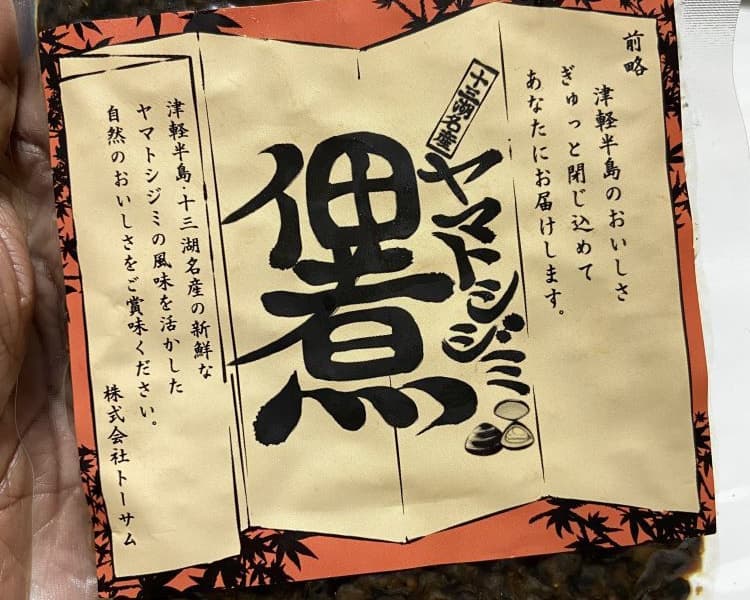 前略
津軽半島のおいしさ
ぎゅっと閉じ込めて
あなたにお届けします。
十三湖名産
ヤマトシジミ
佃煮
津軽半島・十三湖名産の新鮮な
ヤマトシジミの風味を活かした
自然のおいしさをご賞味ください。
株式会社トーサム